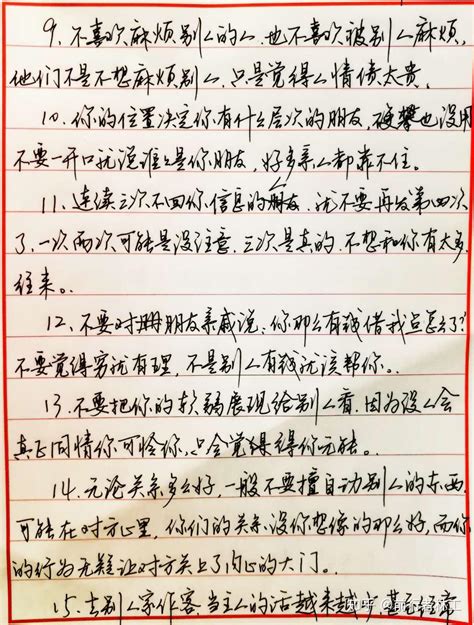 9、不喜欢麻烦别人的人、也不喜欢被别人麻烦,
他们不是不想麻烦别人、只是觉得人情债太贵。
10、你的位置决定你有什么层次的朋友,硬攀也没用
不要一开口就说谁谁是你朋友,好多亲人都靠不住。
11、连续三次不回你信息的朋友、就不要再发第四次
了、一次两次可能是没注意、三次是真的、不想和你有太多
往来。
12、不要对朋友亲戚说:你那么有钱借我点怎么了?
不要觉得穷就有理,不是别人有钱就该帮你。
13、不要把你的软弱展现给别人看、因为没人会
真正同情你可怜你、只会觉得得你无能。
14、无论关系多么好,一般不要擅自动别人的东西
可能在对方心里,你们的关系没你想像的那么好,而你
的行为无疑让对方关上了内心的大门。
15、去别人家作客当主人的话越来越少
知乎